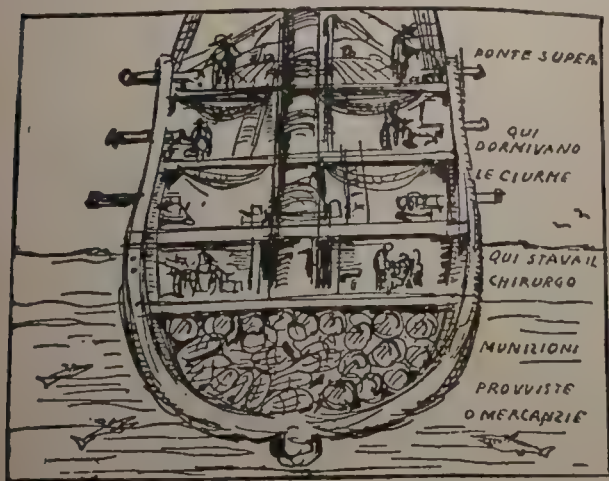 PONTE SUPER
QUI
DORMIVANO
LE CIURME
QUI STAVA IL
CHIRURGO
MUNIZIONI
PROVVISTE
O MERCANZIE